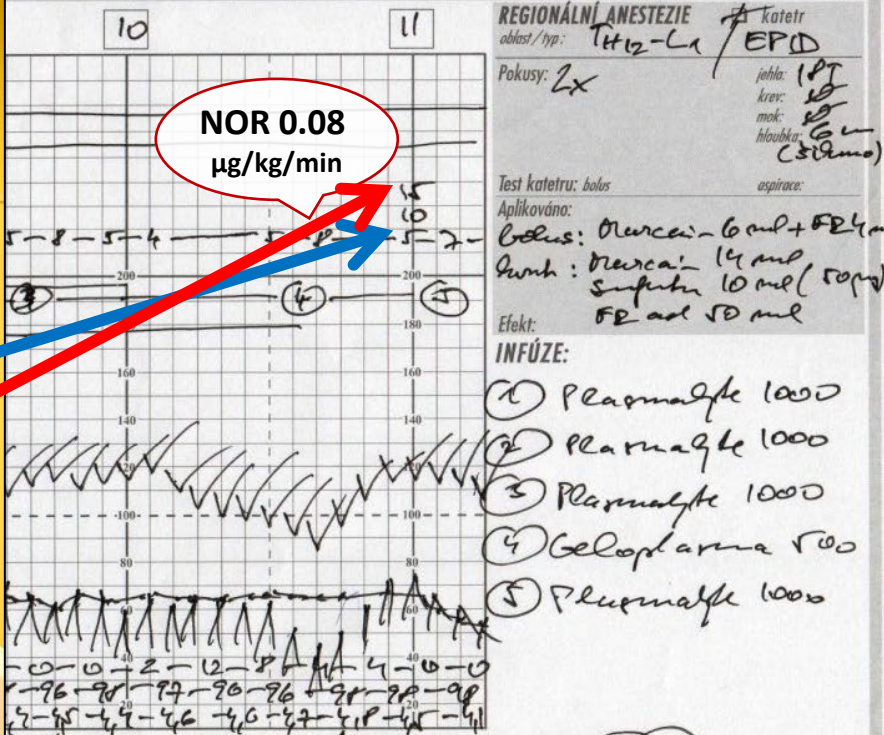 10 11
NOR 0.08
µg/kg/min
15
10
5-8-5-4 5-8-5-7-
200 200
3 4 5
180
160 160
140 140
120 120
-100 -100
80 80
60 60
40 40
-0-0-2-12-8 4-0-0
-96-98-97-96-96-98-98-98
20 20
4,4-4,5-4,4-4,6-4,6-4,7-4,8-4,5-4,1
REGIONÁLNÍ ANESTEZIE katetr
oblast/typ: TH12-L1 / EPID
Pokusy: 2x jehla: 18T
krev:
mok:
hloubka: 6 cm
Test katetru: bolus aspirace:
Aplikováno:
bolus: Marcain 6 ml + FR 4 m
kont: Marcain 14 ml
Sufenta 10 ml (50µg)
FR ad 50 ml
Efekt:
INFÚZE:
1 Plasmalyte 1000
2 Plasmalyte 1000
3 Plasmalyte 1000
4 Geloplasma 500
5 Plasmalyte 1000